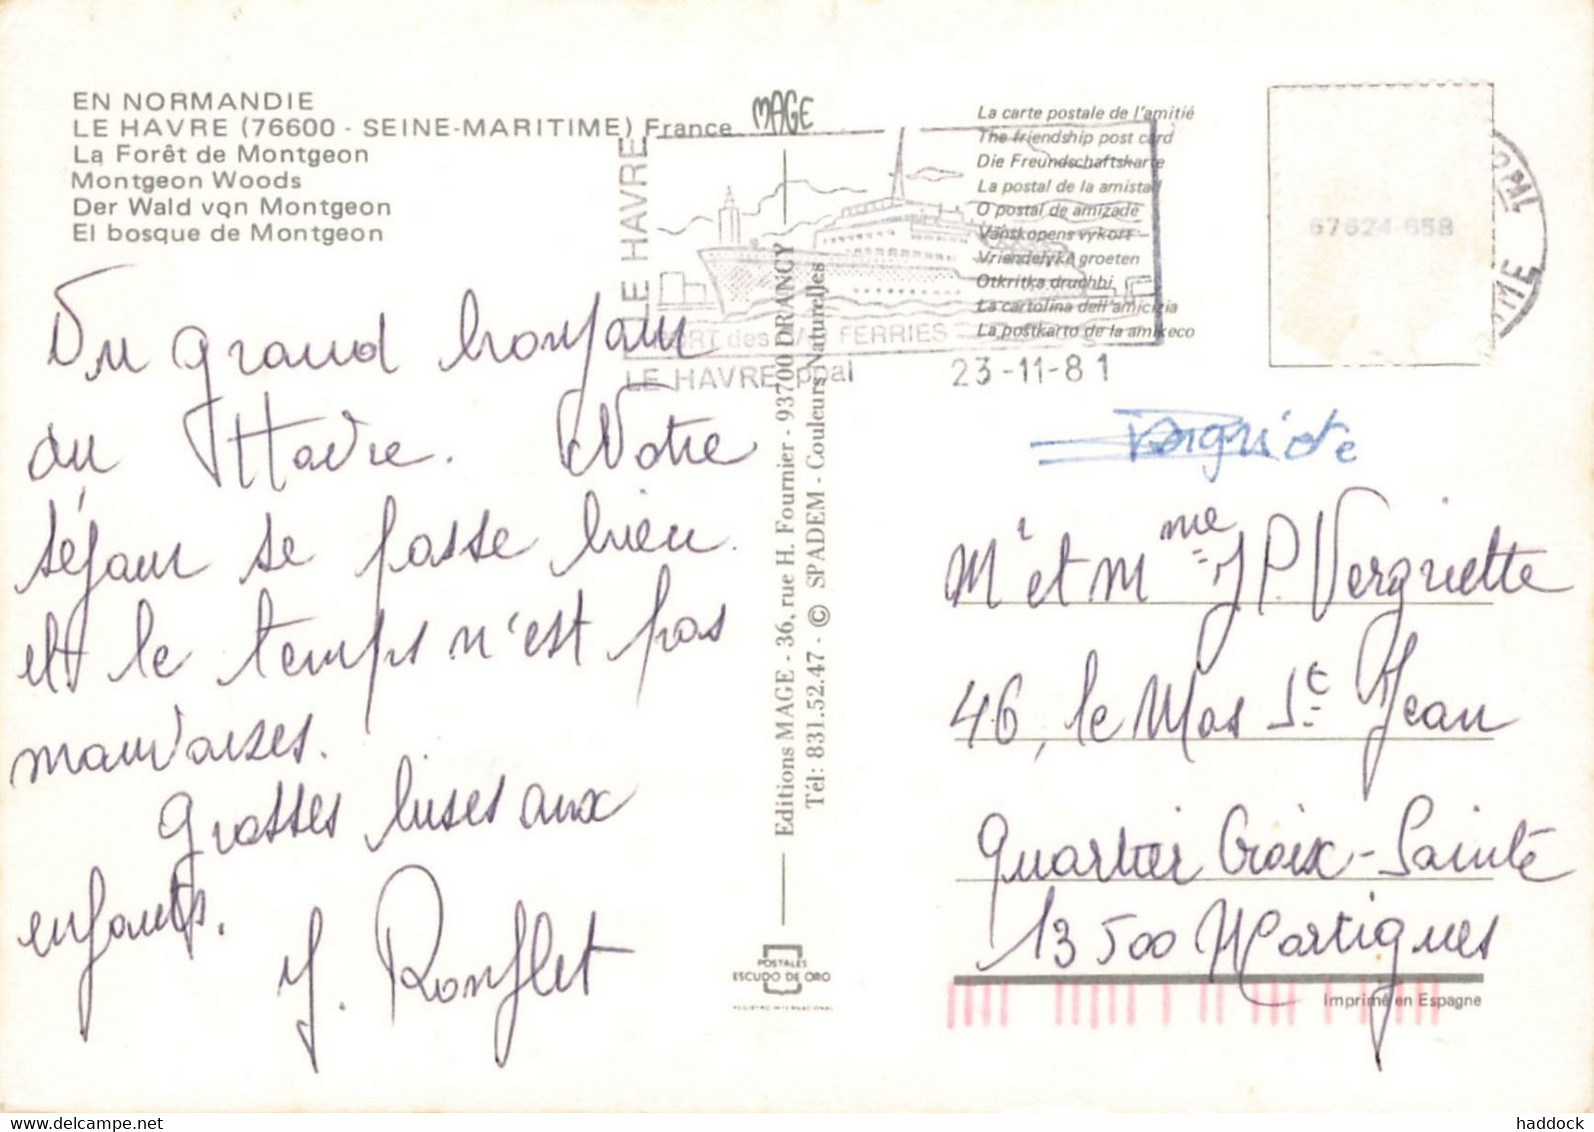 EN NORMANDIE
LE HAVRE (76600 - SEINE-MARITIME) France
MAGE
La Forêt de Montgeon
Montgeon Woods
Der Wald vqn Montgeon
El bosque de Montgeon
Un grand bonjour
du Havre. Notre
séjour se passe bien
et le temps n'est pas
mauvaises.
Grosses bises aux
enfants.
Y. Ronflet
LE HAVRE
LE HAVRE
PORT des CAR FERRIES
LE HAVRE ppal
23-11-81
Editions MAGE - 36, rue H. Fournier - 93700 DRANCY
Tél: 831.52.47 - © SPADEM - Couleurs Naturelles
POSTALES
ESCUDO DE ORO
REGISTRO INTERNACIONAL
La carte postale de l'amitié
The friendship post card
Die Freundschaftskarte
La postal de la amistad
O postal de amizade
Vänskopens vykort
Vriendelyke groeten
Otkritka druchbi
La cartolina dell'amicizia
La postkarto de la amikeco
67624 658
Mr et Mme J P. Vergriette
46, le Mas St Jean
Quartier Croix-Sainte
13500 Martigues
Imprimé en Espagne
haddock